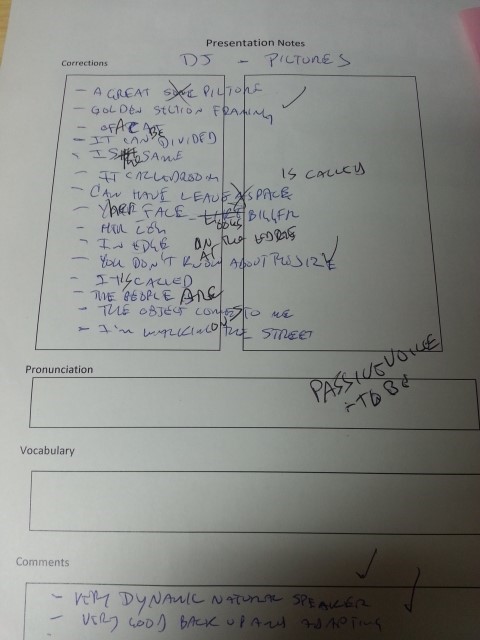 Presentation Notes
Corrections
DJ - PICTURES
- A GREAT PICTURE
- GOLDEN SECTION FRAMING
- OF A CAT
- IT CAN BE DIVIDED
- IS THE SAME
- IT CALLED ROOM
IS CALLED
- CAN HAVE LEAVE A SPACE
- YOUR FACE LOOKS BIGGER
- HER LEG
- IN EDGE ON THE EDGE
AT
- YOU DON'T KNOW ABOUT THE SIZE
- IT IS CALLED
- THE PEOPLE ARE
- THE OBJECT COMES TO ME
- I'M WALKING ON THE STREET
Pronunciation
PASSIVE VOICE
- TO BE
Vocabulary
Comments
- VERY DYNAMIC NATURAL SPEAKER
- VERY GOOD BACK UP AND ADAPTING